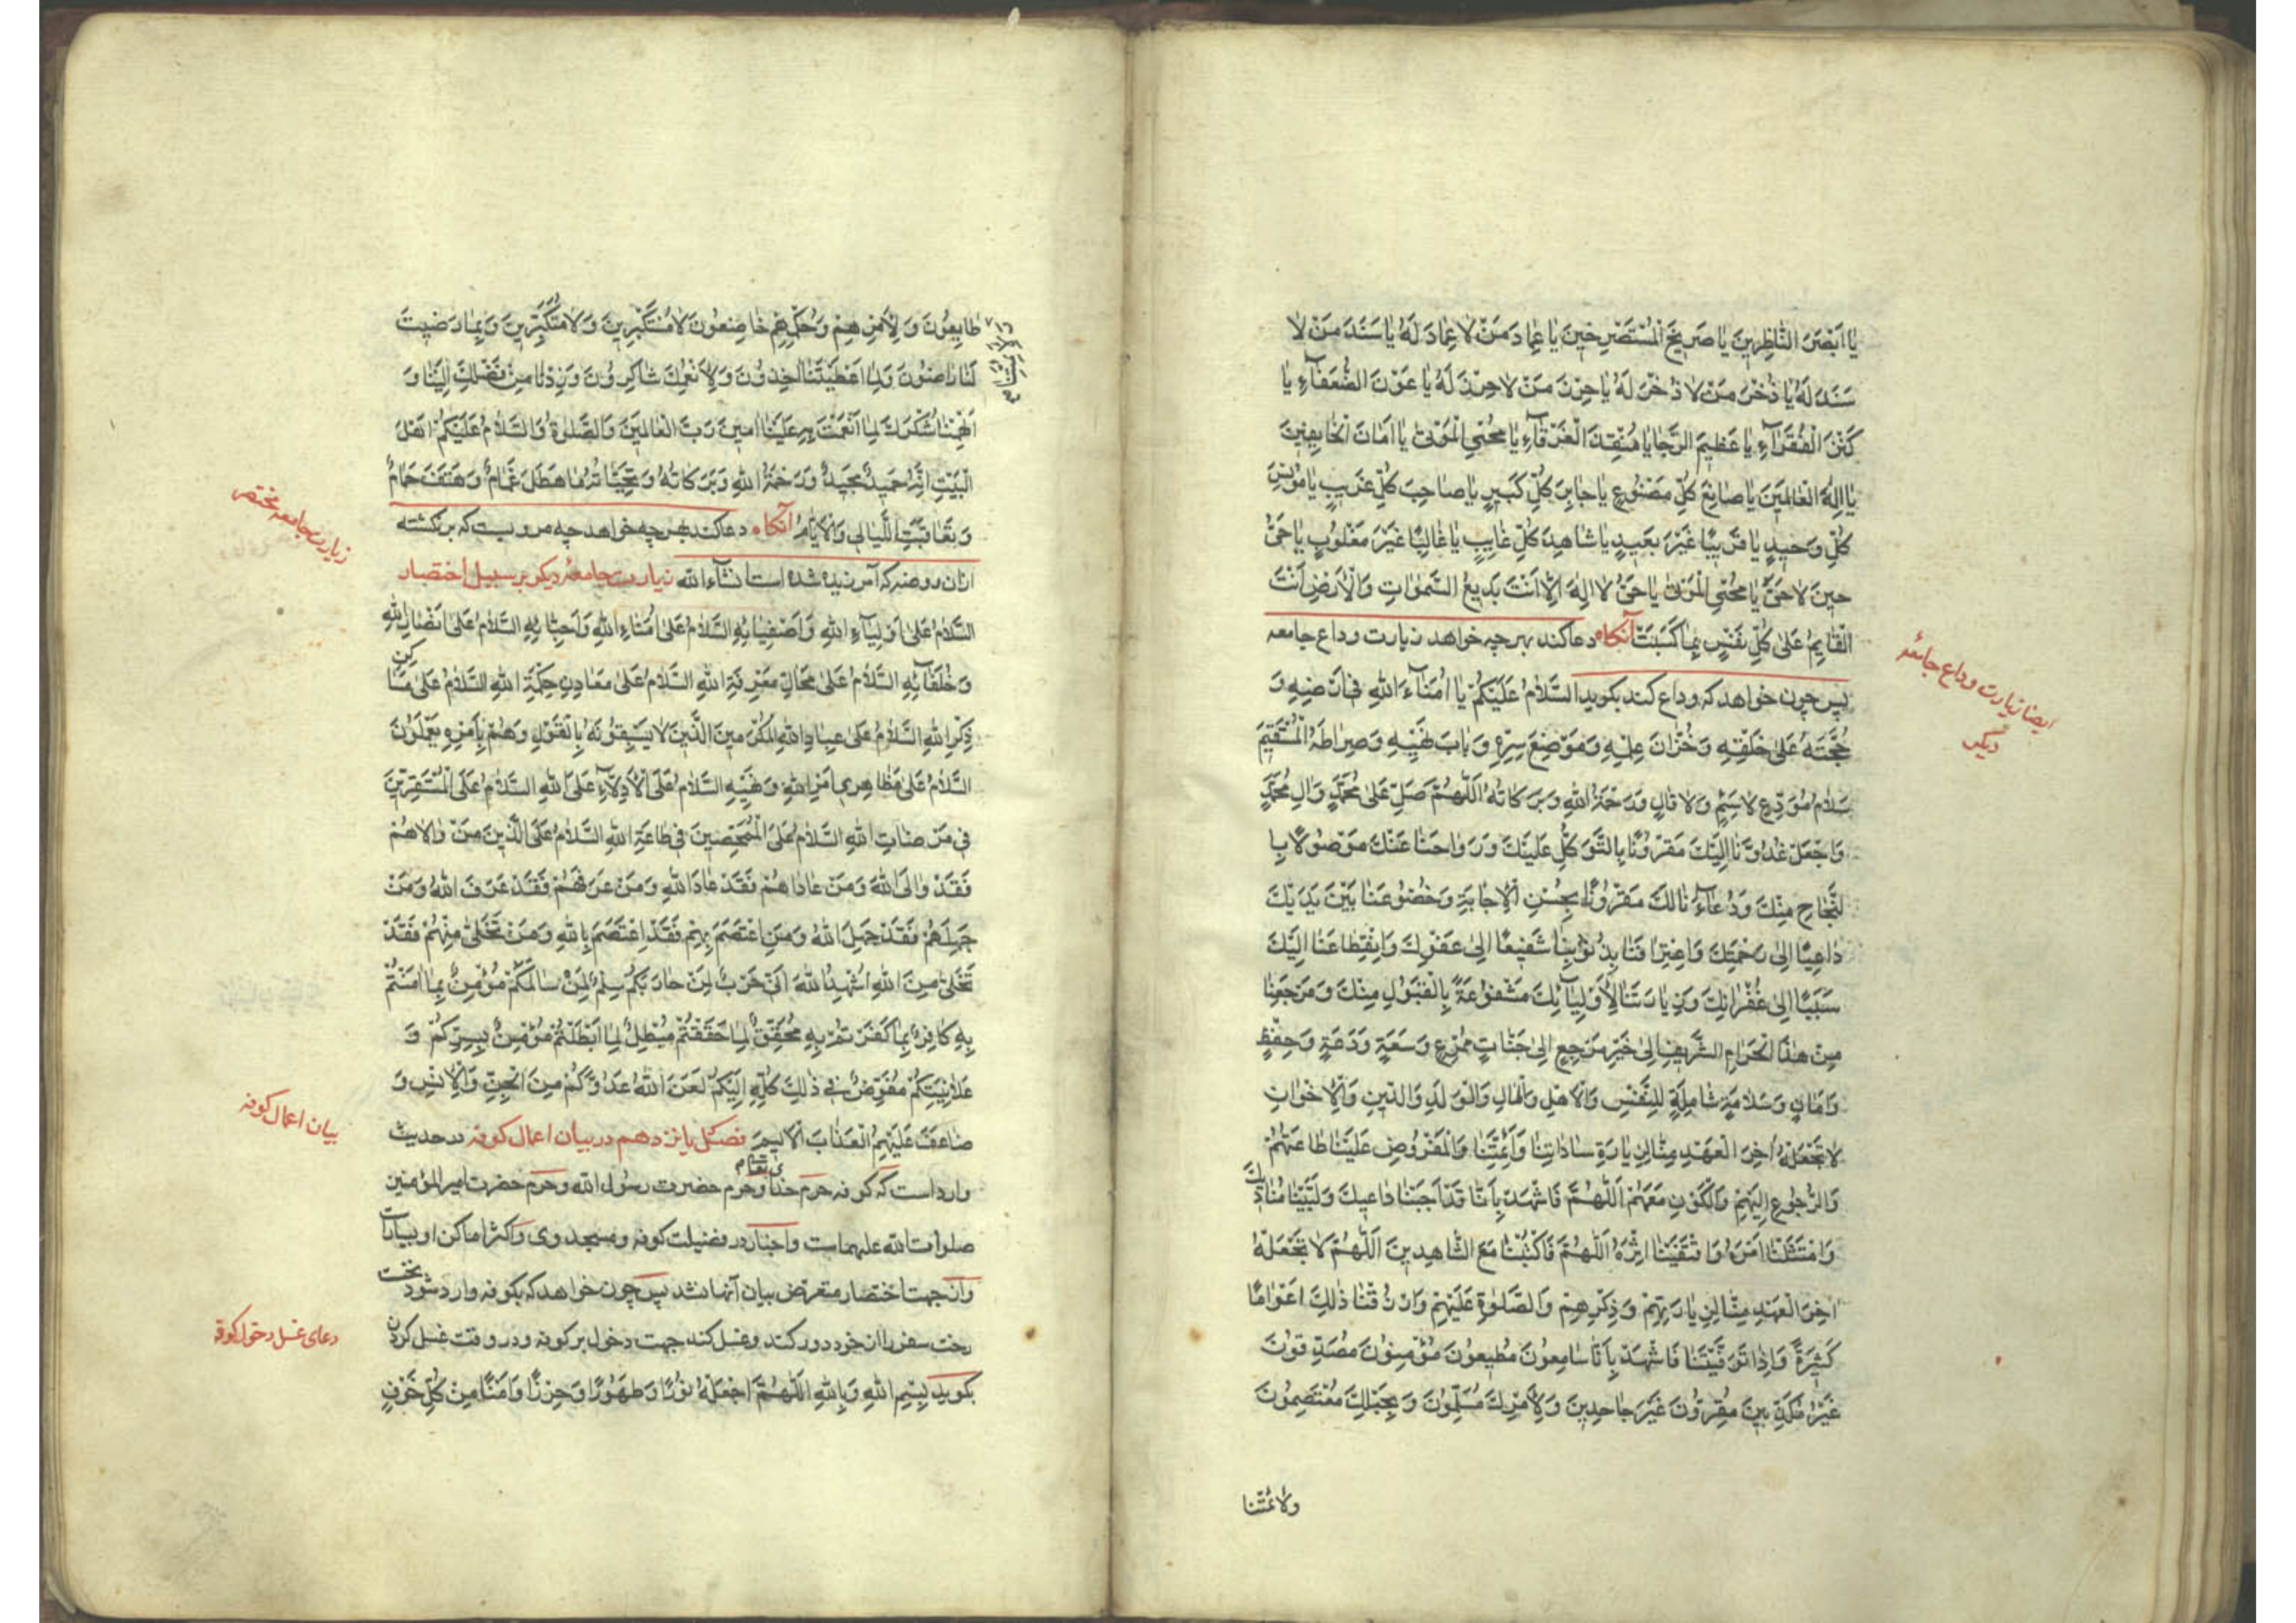 يا اَبْصَرَ النّاظِرينَ يا صَريخَ الْمُسْتَصْرِخينَ يا عِمادَ مَنْ لا عِمادَ لَهُ يا سَنَدَ مَنْ لا
سَنَدَ لَهُ يا ذُخْرَ مَنْ لا ذُخْرَ لَهُ يا حِرْزَ مَنْ لا حِرْزَ لَهُ يا عَوْنَ الضُّعَفآءِ يا
كَنْزَ الْفُقَرآءِ يا عَظيمَ الرَّجا يا مُنْقِذَ الْغَرْقآءِ يا مُحْيِيَ الْمَوْتىٰ يا اَمانَ الْخايِفينَ
يا اِلهَ الْعالَمينَ يا صانِعَ كُلِّ مَصْنُوعٍ يا جابِرَ كُلِّ كَسيرٍ يا صاحِبَ كُلِّ غَريبٍ يا مُونِسَ
كُلِّ وَحيدٍ يا قَريبًا غَيْرَ بَعيدٍ يا شاهِدَ كُلِّ غايِبٍ يا غالِبًا غَيْرَ مَغْلُوبٍ يا حَيُّ
حينَ لا حَيَّ يا مُحْيِيَ الْمَوْتىٰ يا حَيُّ لا اِلهَ اِلّا اَنْتَ بَديعُ السَّمواتِ وَالْاَرْضِ اَنْتَ
الْقايِمُ عَلىٰ كُلِّ نَفْسٍ بِما كَسَبَتْ آنكاه دعا كند بهر چه خواهد زيارت وداع جامعه
پس چون خواهد كه وداع كند بكويد اَلسَّلامُ عَلَيْكُمْ يا اُمَنآءَ اللهِ في اَرْضِهِ وَ
حُجَّتَهُ عَلىٰ خَلْقِهِ وَخُزّانَ عِلْمِهِ وَمَوْضِعَ سِرِّهِ وَبابَ نَهْيِهِ وَصِراطَهُ الْمُسْتَقيمَ
سَلامُ مُوَدِّعٍ لا سَئِمٍ وَلا قالٍ وَرَحْمَةُ اللهِ وَبَرَكاتُهُ اَللّهُمَّ صَلِّ عَلىٰ مُحَمَّدٍ وَالِ مُحَمَّدٍ
وَاجْعَلْ غُدُوَّنا اِلَيْكَ مَقْرُونًا بِالتَّوَكُّلِ عَلَيْكَ وَرَواحَنا عَنْكَ مَوْصُولًا بِا
لنَّجاحِ مِنْكَ وَدُعآءَنا لَكَ مَقْرُونًا بِحُسْنِ الْاِجابَةِ وَخُضُوعَنا بَيْنَ يَدَيْكَ
داعِيًا اِلىٰ رَحْمَتِكَ وَاعْتِرافَنا بِذُنُوبِنا شَفيعًا اِلىٰ عَفْوِكَ وَانْقِطاعَنا اِلَيْكَ
سَبَبًا اِلىٰ غُفْرانِكَ وَزِيارَتَنا لِاَوْلِيآئِكَ مَشْفُوعَةً بِالْقَبُولِ مِنْكَ وَمَرْجِعَنا
مِنْ هٰذَا الْحَرَمِ الشَّريفِ اِلىٰ خَيْرِ مَرْجِعٍ اِلىٰ جَنّاتٍ مُمْرِعٍ وَسَعَةٍ وَدَعَةٍ وَحِفْظٍ
وَاَمانٍ وَسَلامَةٍ شامِلَةٍ لِلنَّفْسِ وَالْاَهْلِ وَالْمالِ وَالْوَلَدِ وَالدّينِ وَالْاِخْوانِ
لا تَجْعَلْهُ اخِرَ الْعَهْدِ مِنّا لِزِيارَةِ ساداتِنا وَاَئِمَّتِنا وَالْمَفْرُوضِ عَلَيْنا طاعَتُهُمْ
وَالرُّجُوعِ اِلَيْهِمْ وَالْكَوْنِ مَعَهُمْ اَللّهُمَّ فَاشْهَدْ بِاَنّا قَدْ اَجَبْنا داعِيَكَ وَلَبَّيْنا مُنادِيَكَ
وَامْتَثَلْنا اَمْرَهُ وَاقْتَفَيْنا اَثَرَهُ اَللّهُمَّ فَاكْتُبْنا مَعَ الشّاهِدينَ اَللّهُمَّ لا تَجْعَلْهُ
اخِرَ الْعَهْدِ مِنّا لِزِيارَتِهِمْ وَذِكْرِهِمْ وَالصَّلوةِ عَلَيْهِمْ وَارْزُقْنا ذٰلِكَ اَعْوامًا
كَثيرَةً وَاِذا تَوَفَّيْتَنا فَاشْهَدْ بِاَنّا سامِعُونَ مُطيعُونَ مُؤْمِنُونَ مُصَدِّقُونَ
غَيْرُ مُكَذِّبينَ مُقِرُّونَ غَيْرَ جاحِدينَ وَلِاَمْرِكَ مُسَلِّمُونَ وَبِحَبْلِكَ مُعْتَصِمُونَ
ولائمتنا
ايضا زيارت وداع جامعهٔ
ديكر
طايِعُونَ وَلِاَمْرِهِمْ وَحُكْمِهِمْ خاضِعُونَ لا مُسْتَكْبِرينَ وَلا مُتَكَبِّرينَ وَبِما رَضيتَ
لَنا راضُونَ وَلِما اَعْطَيْتَنا اخِذُونَ وَلِاَنْعُمِكَ شاكِرُونَ وَزِدْنا مِنْ فَضْلِكَ اِلَيْنا وَ
اَلْهِمْنا شُكْرَكَ لِما اَنْعَمْتَ بِهِ عَلَيْنا امينَ رَبَّ الْعالَمينَ وَالصَّلوةُ وَالسَّلامُ عَلَيْكُمْ اَهْلَ
الْبَيْتِ اِنَّهُ حَميدٌ مَجيدٌ وَرَحْمَةُ اللهِ وَبَرَكاتُهُ وَتَحِيّاتُهُ ما هَطَلَ غَمامٌ وَهَتَفَ حَمامٌ
وَتَعاقَبَتِ اللَّيالي وَالْاَيّامُ آنكاه دعا كند بهر چه خواهد چه مرويست كه برنكشته
ازان روضه كه آمرزيده شده است انشآء الله زيارت جامعهٔ ديكر بر سبيل اختصار
اَلسَّلامُ عَلىٰ اَوْلِيآءِ اللهِ وَاَصْفِيائِهِ اَلسَّلامُ عَلىٰ اُمَناءِ اللهِ وَاَحِبّائِهِ اَلسَّلامُ عَلىٰ اَنْصارِ اللهِ
وَخُلَفآئِهِ اَلسَّلامُ عَلىٰ مَحالِّ مَعْرِفَةِ اللهِ اَلسَّلامُ عَلىٰ مَعادِنِ حِكْمَةِ اللهِ اَلسَّلامُ عَلىٰ مَساكِنِ
ذِكْرِ اللهِ اَلسَّلامُ عَلىٰ عِبادِ اللهِ الْمُكْرَمينَ الَّذينَ لا يَسْبِقُونَهُ بِالْقَوْلِ وَهُمْ بِاَمْرِهِ يَعْمَلُونَ
اَلسَّلامُ عَلىٰ مَظاهِري اَمْرِ اللهِ وَنَهْيِهِ اَلسَّلامُ عَلَى الْاَدِلّآءِ عَلَى اللهِ اَلسَّلامُ عَلَى الْمُسْتَقِرّينَ
في مَرْضاتِ اللهِ اَلسَّلامُ عَلَى الْمُمَحَّصينَ في طاعَةِ اللهِ اَلسَّلامُ عَلَى الَّذينَ مَنْ والاهُمْ
فَقَدْ والَى اللهَ وَمَنْ عاداهُمْ فَقَدْ عادَ اللهَ وَمَنْ عَرَفَهُمْ فَقَدْ عَرَفَ اللهَ وَمَنْ
جَهِلَهُمْ فَقَدْ جَهِلَ اللهَ وَمَنِ اعْتَصَمَ بِهِمْ فَقَدْ اِعْتَصَمَ بِاللهِ وَمَنْ تَخَلّىٰ مِنْهُمْ فَقَدْ
تَخَلّىٰ مِنَ اللهِ اُشْهِدُ اللهَ اَنّي حَرْبٌ لِمَنْ حارَبَكُمْ سِلْمٌ لِمَنْ سالَمَكُمْ مُؤْمِنٌ بِما امَنْتُمْ
بِهِ كافِرٌ بِما كَفَرْتُمْ بِهِ مُحَقِّقٌ لِما حَقَّقْتُمْ مُبْطِلٌ لِما اَبْطَلْتُمْ مُؤْمِنٌ بِسِرِّكُمْ وَ
عَلانِيَتِكُمْ مُفَوِّضٌ في ذٰلِكَ كُلِّهِ اِلَيْكُمْ لَعَنَ اللهُ عَدُوَّكُمْ مِنَ الْجِنِّ وَالْاِنْسِ وَ
ضاعَفَ عَلَيْهِمُ الْعَذابَ الْاَليمَ فصل يانزدهم در بيان اعمال كوفه در حديث
وارد است كه كوفه حرم خداى تعالى وحرم حضرت رسول الله وحرم حضرت امير المؤمنين
صلوات الله عليهماست واخبار در فضيلت كوفه ومسجد وى واكثر اماكن او بسيارست
وازجهت اختصار متعرض بيان آنها نشد پس چون خواهد كه بكوفه وارد شود نخست
رخت سفر را از خود دور كند وغسل كند جهت دخول بر كوفه ودر وقت غسل كردن
بكويد بِسْمِ اللهِ وَبِاللهِ اَللّهُمَّ اجْعَلْهُ نُورًا وَطَهُورًا وَحِرْزًا وَاَمْنًا مِنْ كُلِّ خَوْفٍ
زيارت جامعه مختصر
بيان اعمال كوفه
دعاى غسل دخول كوفه